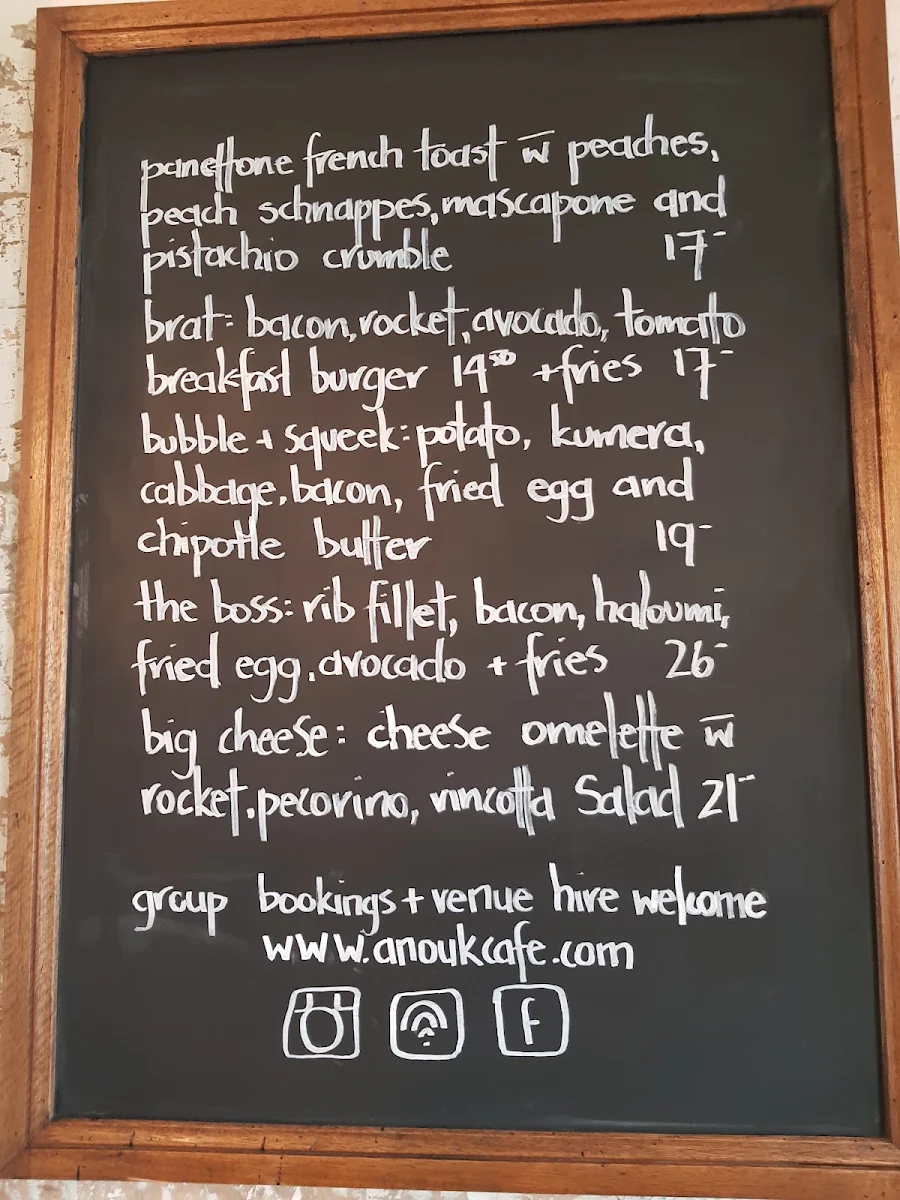 panettone french toast w̅ peaches,
peach schnappes, mascapone and
pistachio crumble 17-
brat: bacon, rocket, avocado, tomato
breakfast burger 14⁵⁰ +fries 17-
bubble + squeek: potato, kumera,
cabbage, bacon, fried egg and
chipotle butter 19-
the boss: rib fillet, bacon, haloumi,
fried egg, avocado + fries 26-
big cheese: cheese omelette w̅
rocket, pecorino, vincotta Salad 21-
group bookings + venue hire welcome
www.anoukcafe.com
f